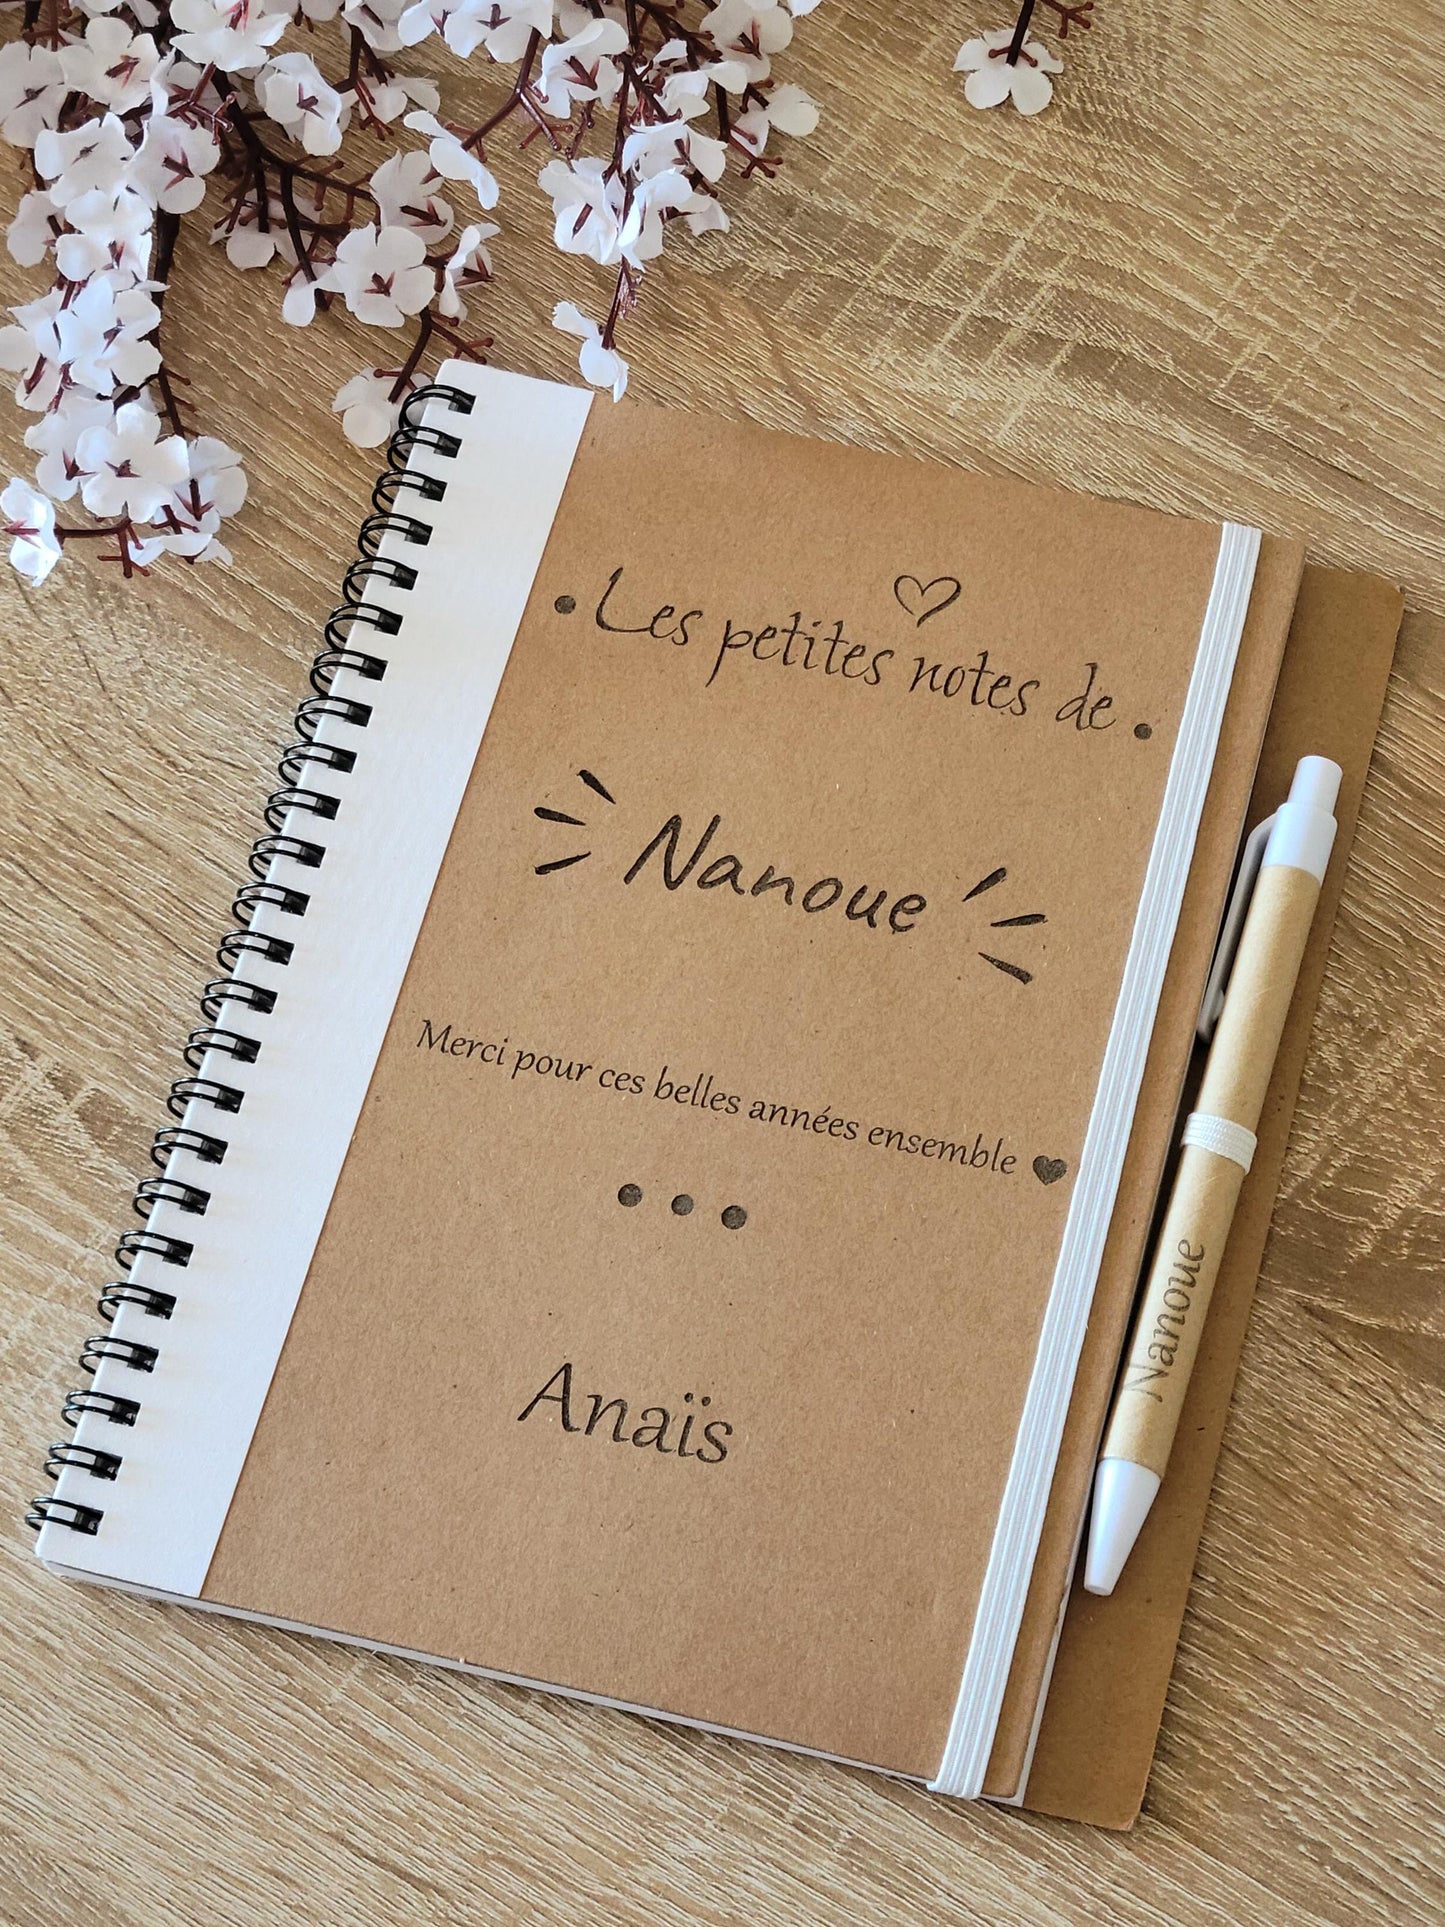 Les petites notes de
Nanoue
Merci pour ces belles années ensemble
Anaïs
Nanoue